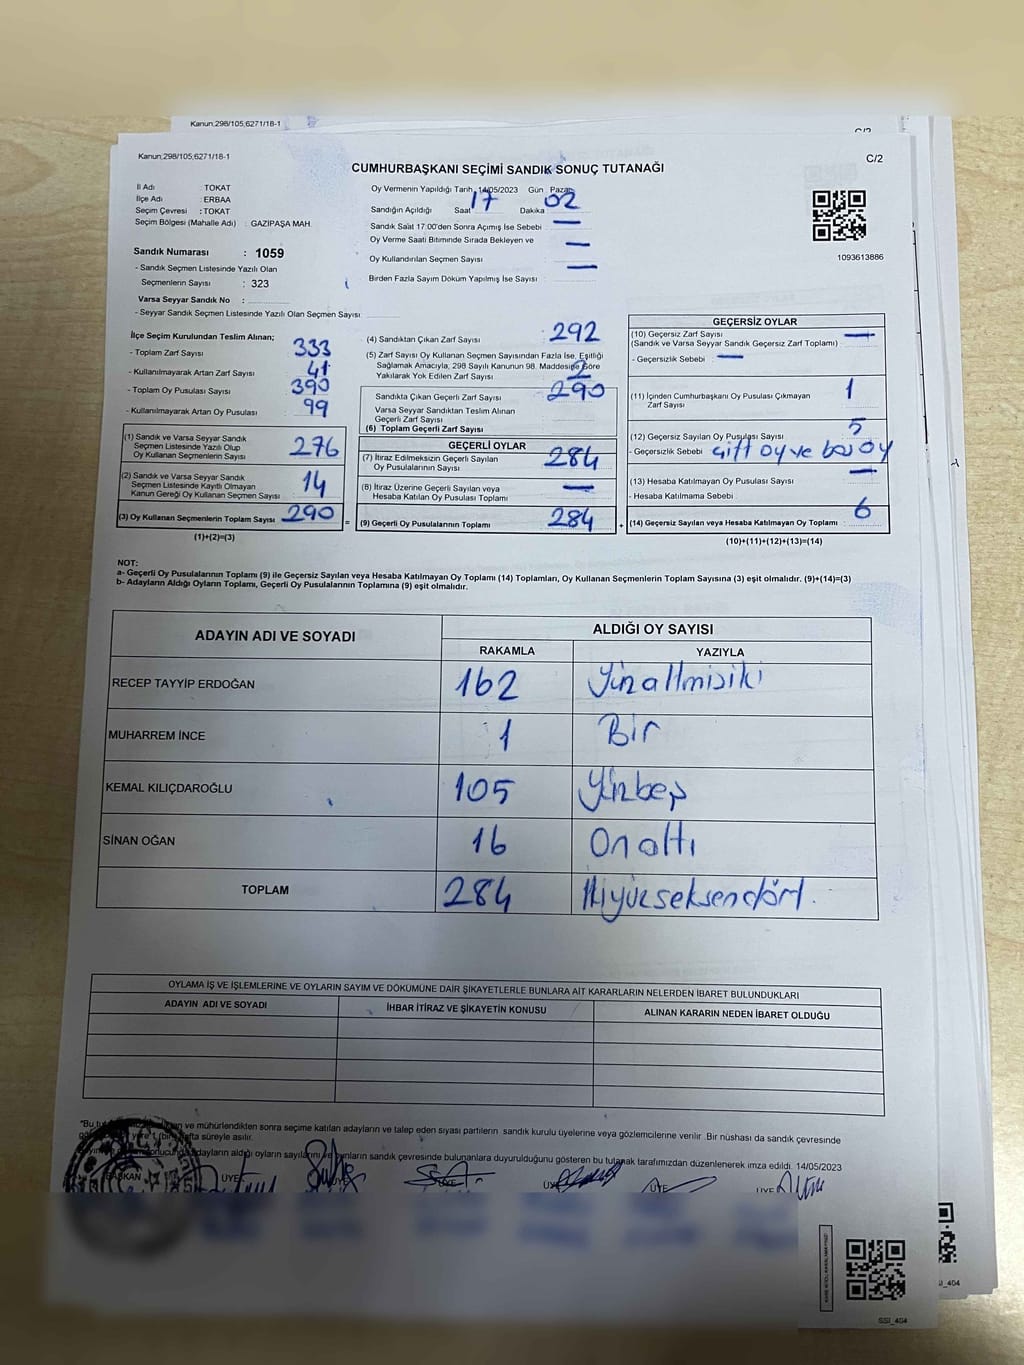 Kanun;298/105;6271/18-1
Kanun;298/105;6271/18-1
C/2
CUMHURBAŞKANI SEÇİMİ SANDIK SONUÇ TUTANAĞI
İl Adı : TOKAT
İlçe Adı : ERBAA
Seçim Çevresi : TOKAT
Seçim Bölgesi (Mahalle Adı) : GAZİPAŞA MAH.
Sandık Numarası : 1059
- Sandık Seçmen Listesinde Yazılı Olan
Seçmenlerin Sayısı : 323
Varsa Seyyar Sandık No :
- Seyyar Sandık Seçmen Listesinde Yazılı Olan Seçmen Sayısı
Oy Vermenin Yapıldığı Tarih 14/05/2023 Gün Pazar
Sandığın Açıldığı Saat 17 Dakika 02
Sandık Saat 17:00'den Sonra Açımış İse Sebebi —
Oy Verme Saati Bitiminde Sırada Bekleyen ve
Oy Kullandırılan Seçmen Sayısı —
Birden Fazla Sayım Döküm Yapılmış İse Sayısı —
1093613886
İlçe Seçim Kurulundan Teslim Alınan;
- Toplam Zarf Sayısı 333
- Kullanılmayarak Artan Zarf Sayısı 41
- Toplam Oy Pusulası Sayısı 390
- Kullanılmayarak Artan Oy Pusulası 99
(1) Sandık ve Varsa Seyyar Sandık
Seçmen Listesinde Yazılı Olup
Oy Kullanan Seçmenlerin Sayısı 276
(2) Sandık ve Varsa Seyyar Sandık
Seçmen Listesinde Kayıtlı Olmayan
Kanun Gereği Oy Kullanan Seçmen Sayısı 14
(3) Oy Kullanan Seçmenlerin Toplam Sayısı 290 =
(1)+(2)=(3)
(4) Sandıktan Çıkan Zarf Sayısı : 292
(5) Zarf Sayısı Oy Kullanan Seçmen Sayısından Fazla İse, Eşitliği
Sağlamak Amacıyla, 298 Sayılı Kanunun 98. Maddesine Göre
Yakılarak Yok Edilen Zarf Sayısı : 2
Sandıkta Çıkan Geçerli Zarf Sayısı : 290
Varsa Seyyar Sandıktan Teslim Alınan
Geçerli Zarf Sayısı
(6) Toplam Geçerli Zarf Sayısı
GEÇERLİ OYLAR
(7) İtiraz Edilmeksizin Geçerli Sayılan
Oy Pusulalarının Sayısı 284
(8) İtiraz Üzerine Geçerli Sayılan veya
Hesaba Katılan Oy Pusulası Toplamı —
(9) Geçerli Oy Pusulalarının Toplamı 284 +
GEÇERSİZ OYLAR
(10) Geçersiz Zarf Sayısı
(Sandık ve Varsa Seyyar Sandık Geçersiz Zarf Toplamı) —
- Geçersizlik Sebebi : —
(11) İçinden Cumhurbaşkanı Oy Pusulası Çıkmayan
Zarf Sayısı 1
(12) Geçersiz Sayılan Oy Pusulası Sayısı 5
- Geçersizlik Sebebi : çift oy ve boş oy
(13) Hesaba Katılmayan Oy Pusulası Sayısı —
- Hesaba Katılmama Sebebi
(14) Geçersiz Sayılan veya Hesaba Katılmayan Oy Toplamı : 6
(10)+(11)+(12)+(13)=(14)
NOT:
a- Geçerli Oy Pusulalarının Toplamı (9) ile Geçersiz Sayılan veya Hesaba Katılmayan Oy Toplamı (14) Toplamları, Oy Kullanan Seçmenlerin Toplam Sayısına (3) eşit olmalıdır. (9)+(14)=(3)
b- Adayların Aldığı Oyların Toplamı, Geçerli Oy Pusulalarının Toplamına (9) eşit olmalıdır.
ADAYIN ADI VE SOYADI ALDIĞI OY SAYISI
RAKAMLA YAZIYLA
RECEP TAYYİP ERDOĞAN 162 Yüzaltmışiki
MUHARREM İNCE 1 Bir
KEMAL KILIÇDAROĞLU 105 Yüzbeş
SİNAN OĞAN 16 Onaltı
TOPLAM 284 İkiyüzseksendört.
OYLAMA İŞ VE İŞLEMLERİNE VE OYLARIN SAYIM VE DÖKÜMÜNE DAİR ŞİKAYETLERLE BUNLARA AİT KARARLARIN NELERDEN İBARET BULUNDUKLARI
ADAYIN ADI VE SOYADI İHBAR İTİRAZ VE ŞİKAYETİN KONUSU ALINAN KARARIN NEDEN İBARET OLDUĞU
ve mühürlendikten sonra seçime katılan adayların ve talep eden siyasi partilerin sandık kurulu üyelerine veya gözlemcilerine verilir .Bir nüshası da sandık çevresinde
hafta süreyle asılır.
adayların aldığı oyların sayılarını ve bunların sandık çevresinde bulunanlara duyurulduğunu gösteren bu tutanak tarafımızdan düzenlenerek imza edildi. 14/05/2023
BAŞKAN ÜYE ÜYE ÜYE ÜYE ÜYE
SSI_404
SSI_404